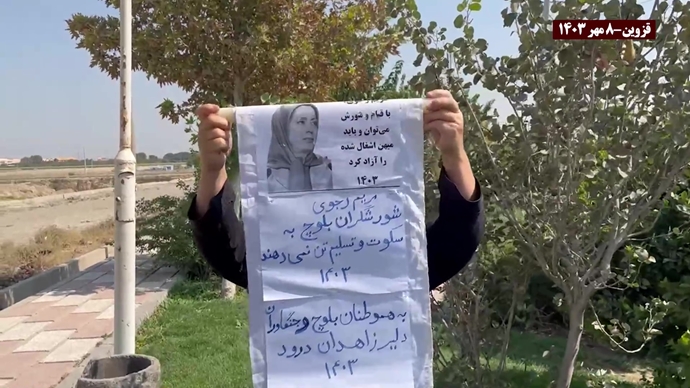 قزوین -۸ مهر ۱۴۰۳
با قیام و شورش
می‌توان و باید
میهن اشغال شده
را آزاد کرد
۱۴۰۳
مریم رجوی
شورشگران بلوچ به
سکوت و تسلیم تن نمی دهند
۱۴۰۳
به هموطنان بلوچ و جنگاوران
دلیر زاهدان درود
۱۴۰۳